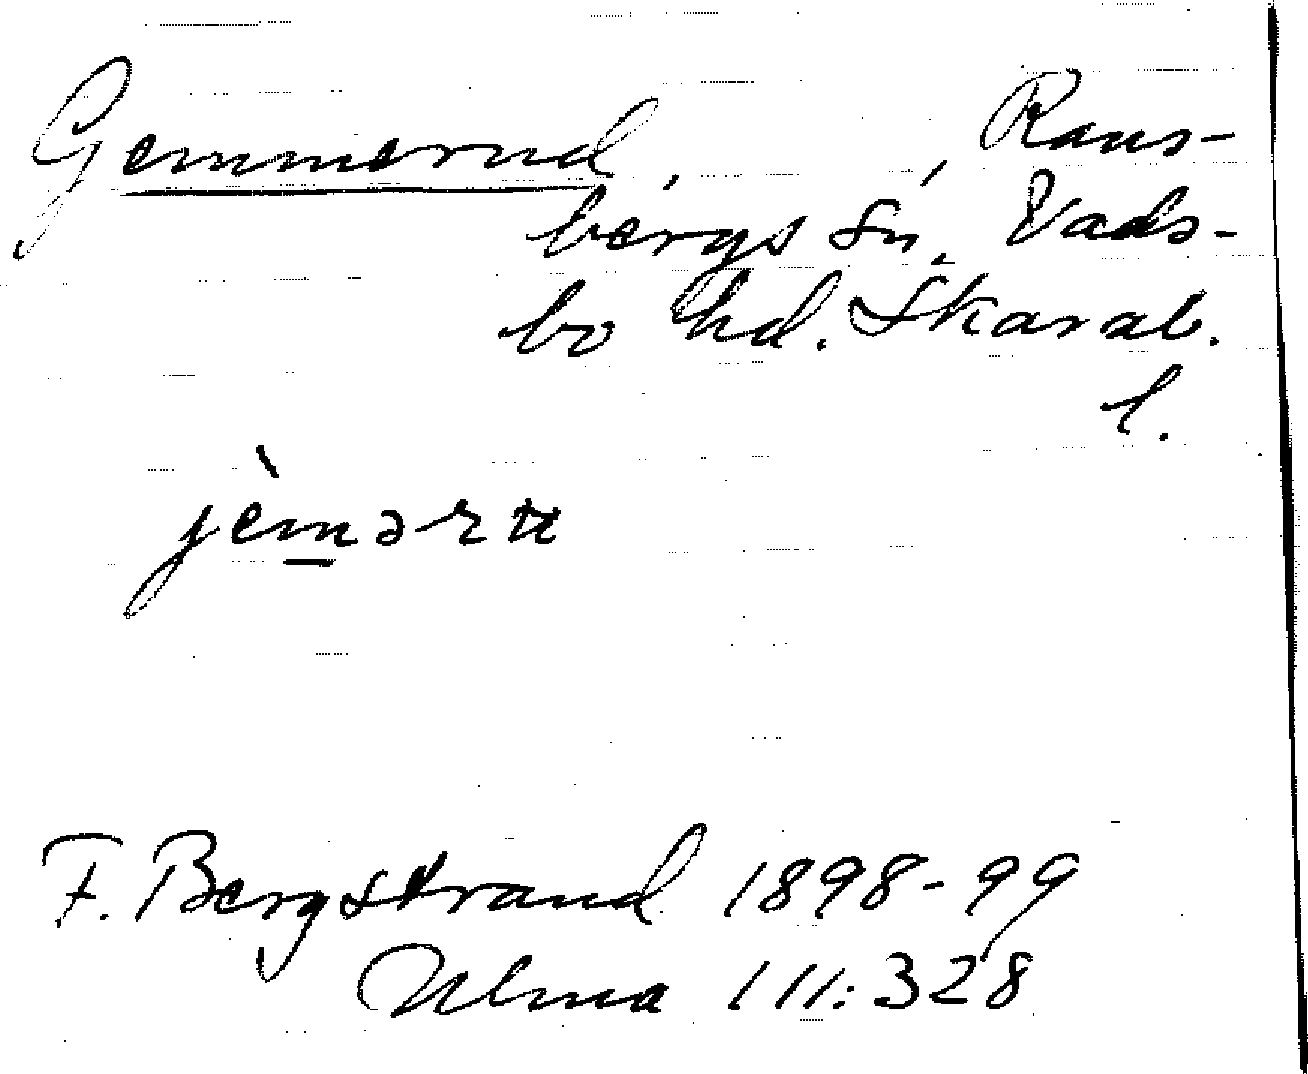 Gemmerud, , Rans-
bergs sn, Vads-
bo hd. Skarab.
l.
jèməru
F. Bergstrand 1898-99
Ulma 111:328